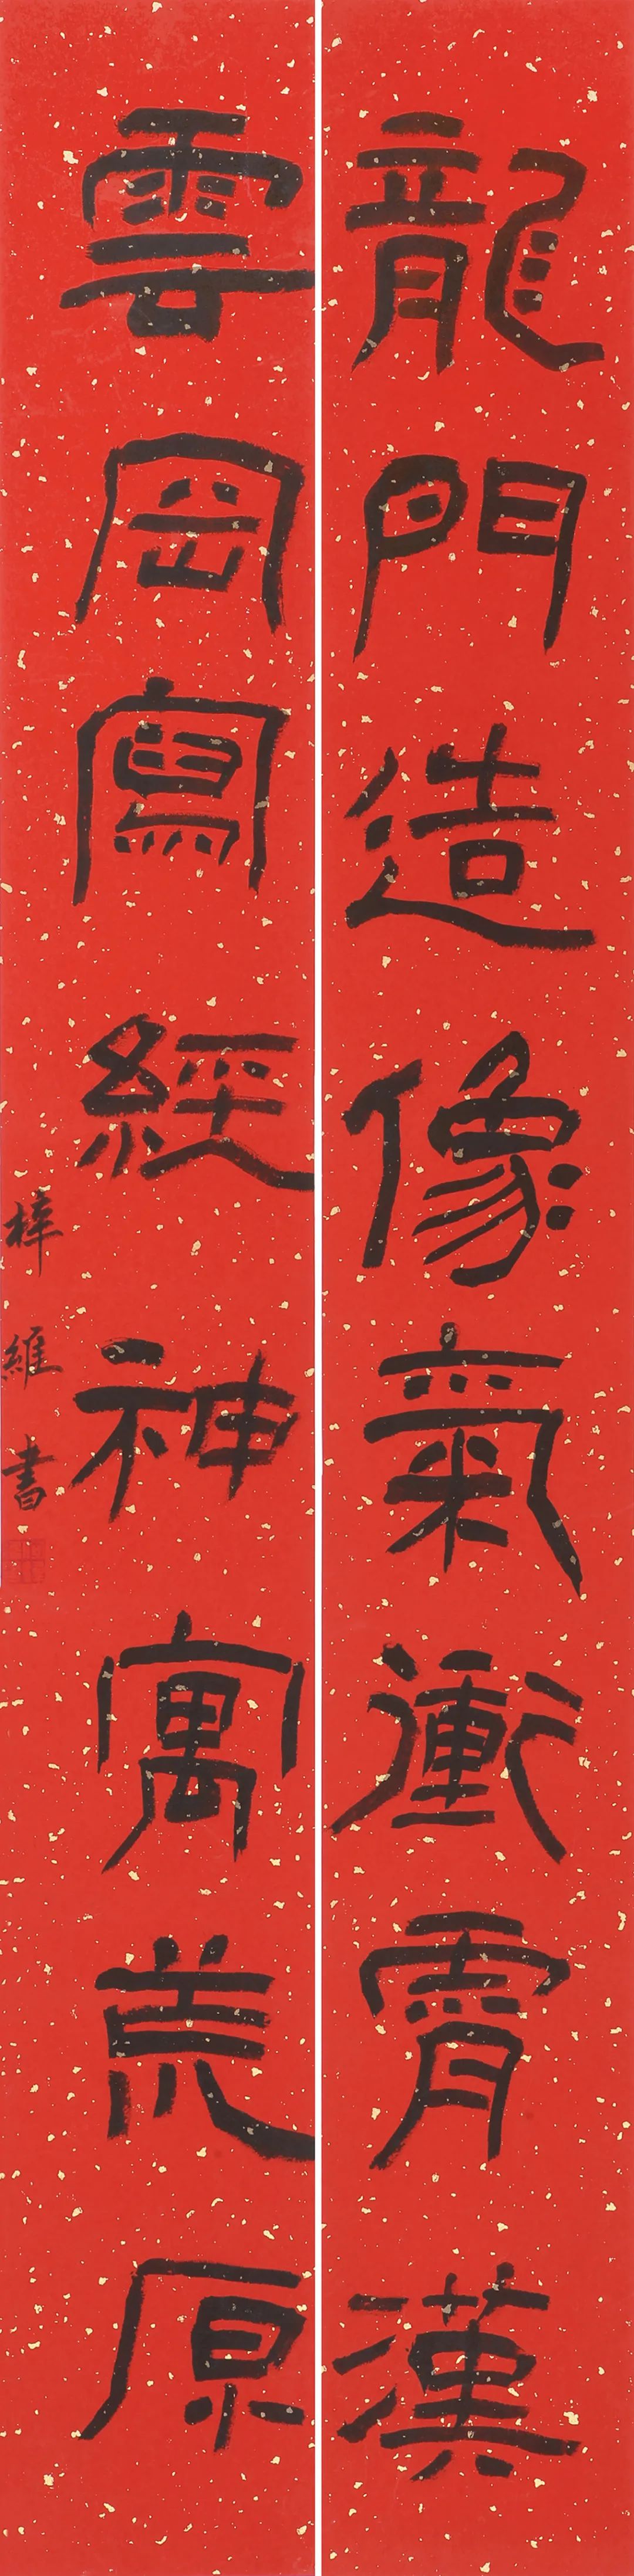 龍門造像氣衝霄漢
雲岡寫經神寓荒原
梓維書